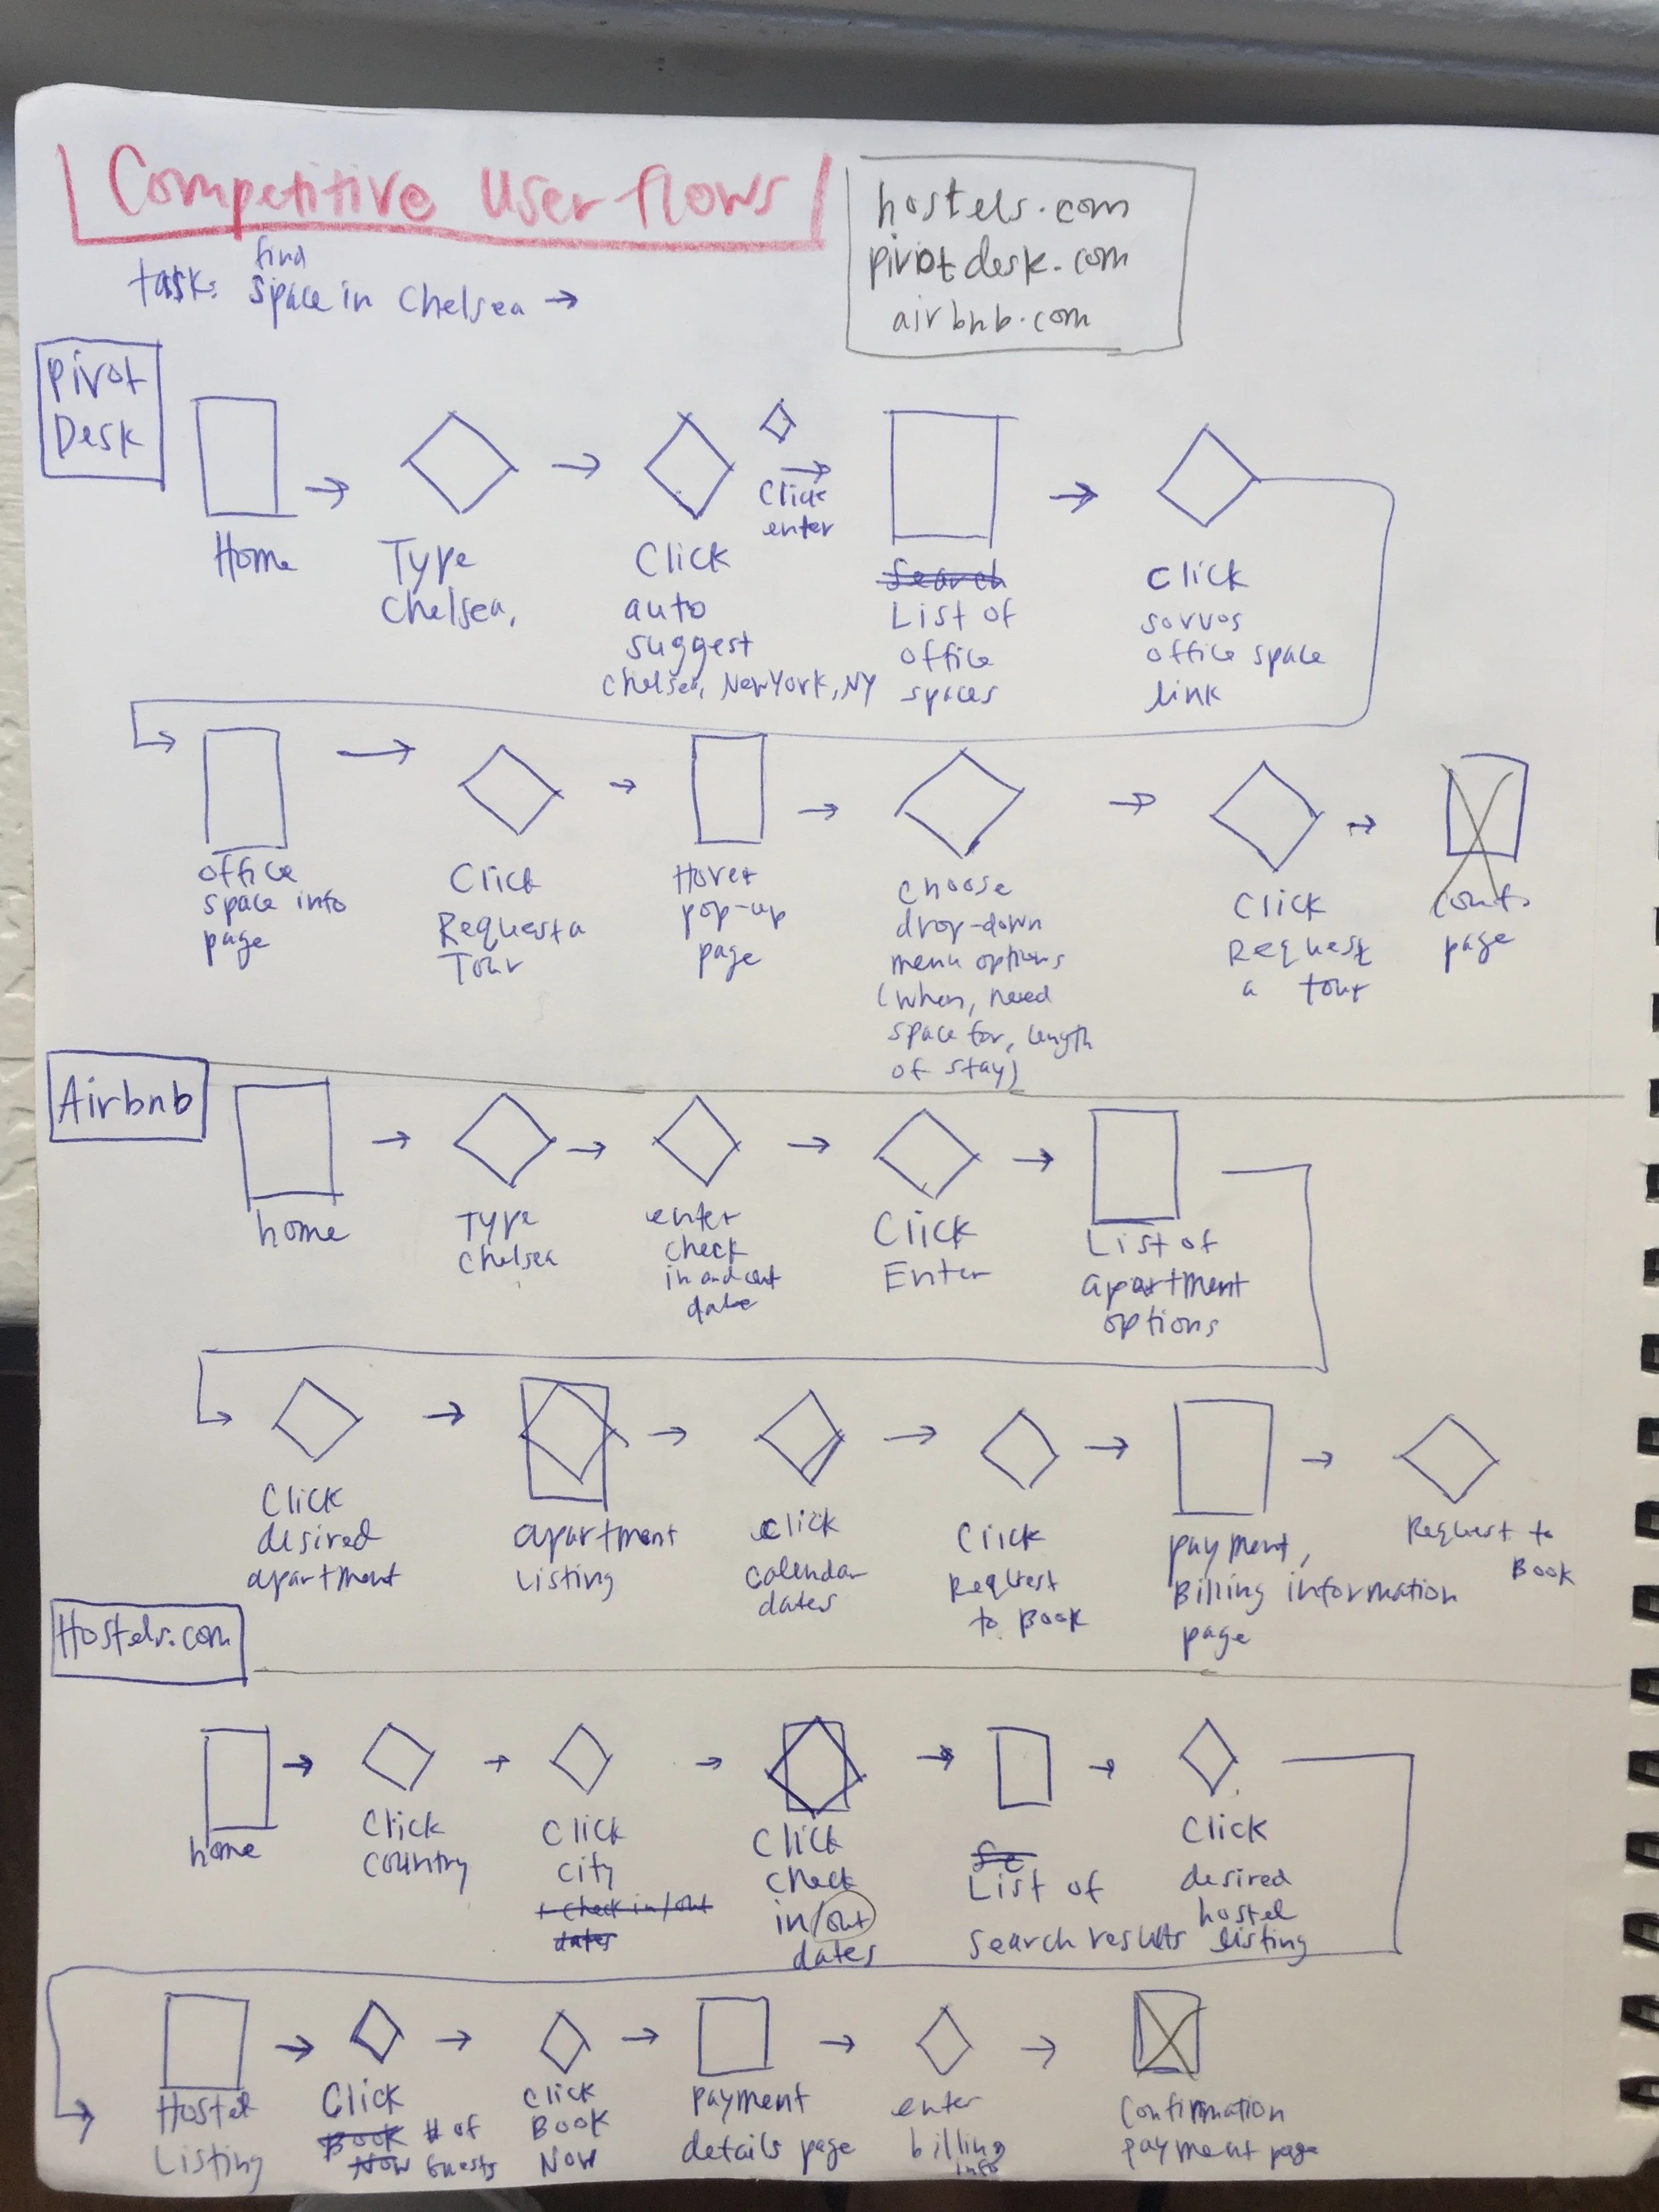 Competitive User flows
hostels.com
pivotdesk.com
airbnb.com
find
task: space in Chelsea →
Pivot
Desk
Home
Type
Chelsea,
Click
auto
suggest
Chelsea, New York, NY
Click
enter
Search
List of
office
spaces
Click
office space
link
office
space info
page
Click
Request a
Tour
Hover
pop-up
page
choose
drop-down
menu options
(when, need
space for, length
of stay)
Click
Request
a tour
conf.
page
Airbnb
home
Type
Chelsea
enter
check
in and out
date
Click
Enter
List of
apartment
options
Click
desired
apartment
apartment
Listing
click
calendar
dates
Click
Request
to Book
payment,
Billing information
page
Request to
Book
Hostels.com
home
Click
country
Click
city
+ check in/out
dates
Click
check
in/out
dates
Se
List of
search results
Click
desired
hostel
listing
Hostel
Listing
Click
Book # of
Now Guests
click
Book
Now
payment
details page
enter
billing
info
Confirmation
payment page